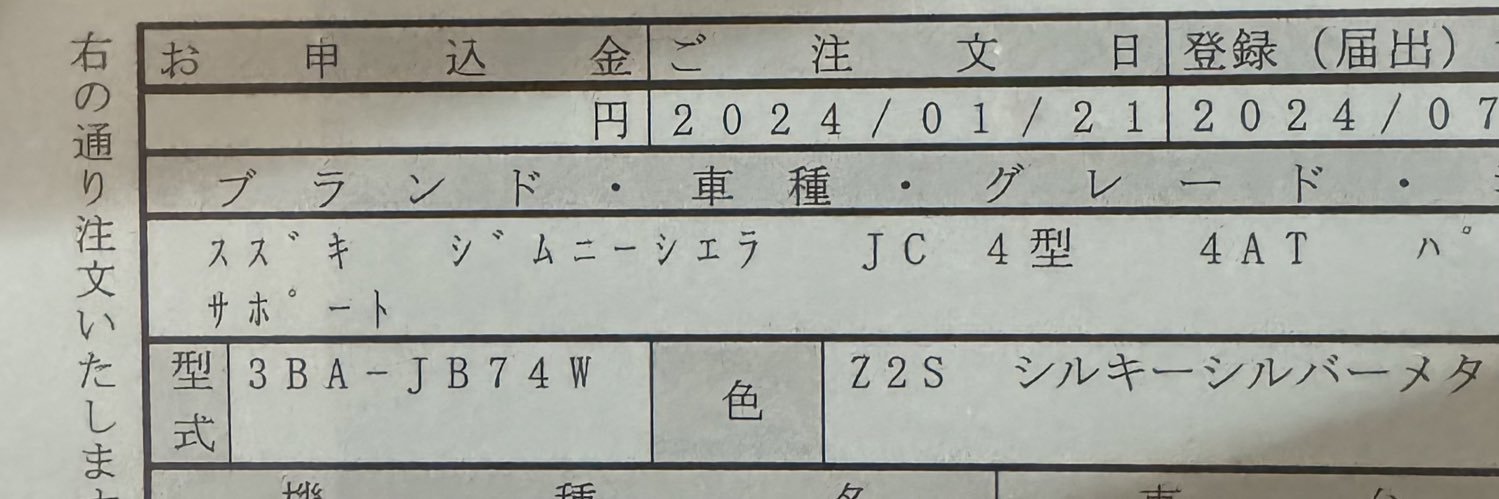 右の通り注文いたしま
お申込金 ご注文日 登録（届出）
円 2024/01/21 2024/07
ブランド・車種・グレード・
ｽｽﾞｷ ｼﾞﾑﾆｰｼｴﾗ JC 4型 4AT ﾊﾟ
ｻﾎﾟｰﾄ
型式 3BA-JB74W 色 Z2S シルキーシルバーメタ